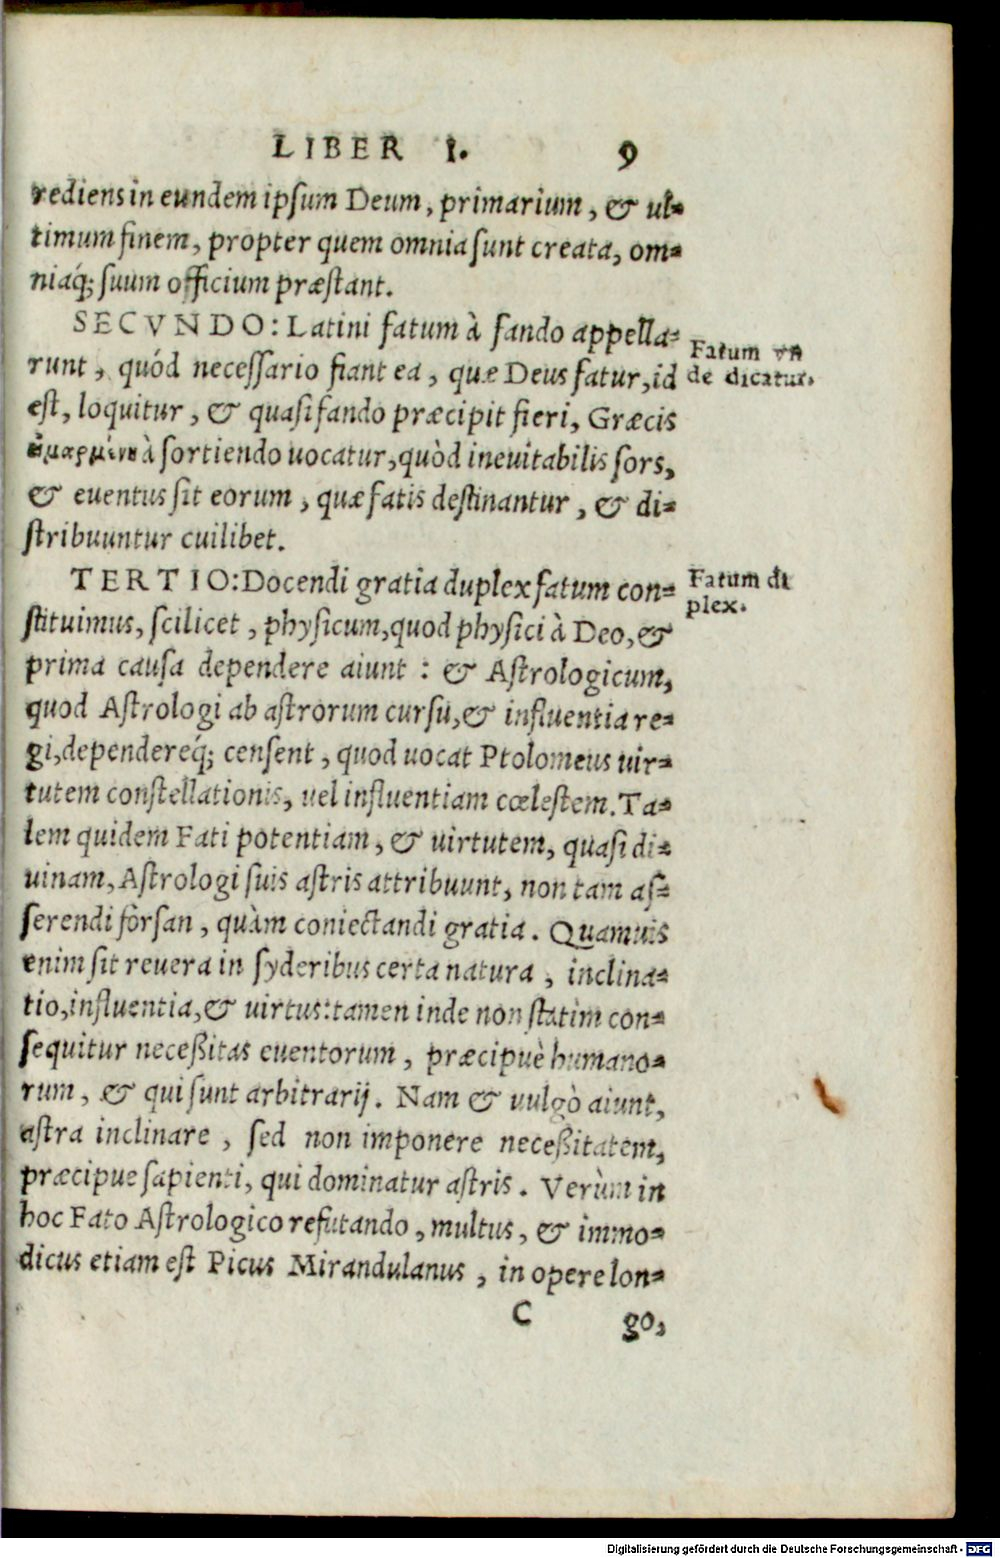 LIBER I. 9
rediens in eundem ipsum Deum, primarium, & ul-
timum finem, propter quem omnia sunt creata, om-
niaq́; suum officium præstant.
SECVNDO: Latini fatum à fando appella-
Fatum vn
runt, quód necessario fiant ea, quæ Deus fatur, id
de dicatur.
est, loquitur, & quasi fando præcipit fieri, Græcis
à sortiendo uocatur, quòd ineuitabilis sors,
& euentus sit eorum, quæ fatis destinantur, & di-
stribuuntur cuilibet.
TERTIO: Docendi gratia duplex fatum con-
Fatum du
plex.
stituimus, scilicet, physicum, quod physici à Deo, &
prima causa dependere aiunt: & Astrologicum,
quod Astrologi ab astrorum cursu, & influentia re-
gi, dependereq́; censent, quod uocat Ptolomeus uir-
tutem constellationis, uel influentiam cœlestem. Ta-
lem quidem Fati potentiam, & uirtutem, quasi di-
uinam, Astrologi suis astris attribuunt, non tam as-
serendi forsan, quàm coniectandi gratia. Quamuis
enim sit reuera in syderibus certa natura, inclina-
tio, influentia, & uirtus: tamen inde non statim con-
sequitur neceßitas euentorum, præcipuè humano-
rum, & qui sunt arbitrarij. Nam & uulgò aiunt,
astra inclinare, sed non imponere neceßitatem,
præcipue sapienti, qui dominatur astris. Verùm in
hoc Fato Astrologico refutando, multus, & immo-
dicus etiam est Picus Mirandulanus, in opere lon-
C go,
Digitalisierung gefördert durch die Deutsche Forschungsgemeinschaft - DFG